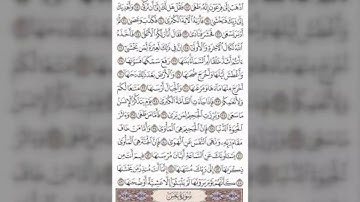 ٱذْهَبْ إِلَىٰ فِرْعَوْنَ إِنَّهُۥ طَغَىٰ ١٧ فَقُلْ هَل لَّكَ إِلَىٰٓ أَن تَزَكَّىٰ ١٨ وَأَهْدِيَكَ
إِلَىٰ رَبِّكَ فَتَخْشَىٰ ١٩ فَأَرَىٰهُ ٱلْـَٔايَةَ ٱلْكُبْرَىٰ ٢٠ فَكَذَّبَ وَعَصَىٰ ٢١
ثُمَّ أَدْبَرَ يَسْعَىٰ ٢٢ فَحَشَرَ فَنَادَىٰ ٢٣ فَقَالَ أَنَا۠ رَبُّكُمُ ٱلْأَعْلَىٰ ٢٤ فَأَخَذَهُ
ٱللَّهُ نَكَالَ ٱلْـَٔاخِرَةِ وَٱلْأُولَىٰٓ ٢٥ إِنَّ فِى ذَٰلِكَ لَعِبْرَةً لِّمَن يَخْشَىٰٓ ٢٦
ءَأَنتُمْ أَشَدُّ خَلْقًا أَمِ ٱلسَّمَآءُ ۚ بَنَىٰهَا ٢٧ رَفَعَ سَمْكَهَا فَسَوَّىٰهَا ٢٨
وَأَغْطَشَ لَيْلَهَا وَأَخْرَجَ ضُحَىٰهَا ٢٩ وَٱلْأَرْضَ بَعْدَ ذَٰلِكَ دَحَىٰهَآ ٣٠
أَخْرَجَ مِنْهَا مَآءَهَا وَمَرْعَىٰهَا ٣١ وَٱلْجِبَالَ أَرْسَىٰهَا ٣٢ مَتَٰعًا لَّكُمْ
وَلِأَنْعَٰمِكُمْ ٣٣ فَإِذَا جَآءَتِ ٱلطَّآمَّةُ ٱلْكُبْرَىٰ ٣٤ يَوْمَ يَتَذَكَّرُ ٱلْإِنسَٰنُ
مَا سَعَىٰ ٣٥ وَبُرِّزَتِ ٱلْجَحِيمُ لِمَن يَرَىٰ ٣٦ فَأَمَّا مَن طَغَىٰ ٣٧ وَءَاثَرَ
ٱلْحَيَوٰةَ ٱلدُّنْيَا ٣٨ فَإِنَّ ٱلْجَحِيمَ هِىَ ٱلْمَأْوَىٰ ٣٩ وَأَمَّا مَنْ خَافَ
مَقَامَ رَبِّهِۦ وَنَهَى ٱلنَّفْسَ عَنِ ٱلْهَوَىٰ ٤٠ فَإِنَّ ٱلْجَنَّةَ هِىَ ٱلْمَأْوَىٰ ٤١
يَسْـَٔلُونَكَ عَنِ ٱلسَّاعَةِ أَيَّانَ مُرْسَىٰهَا ٤٢ فِيمَ أَنتَ مِن
ذِكْرَىٰهَآ ٤٣ إِلَىٰ رَبِّكَ مُنتَهَىٰهَآ ٤٤ إِنَّمَآ أَنتَ مُنذِرُ مَن يَخْشَىٰهَا
٤٥ كَأَنَّهُمْ يَوْمَ يَرَوْنَهَا لَمْ يَلْبَثُوٓا۟ إِلَّا عَشِيَّةً أَوْ ضُحَىٰهَا ٤٦
سُورَةُ عَبَسَ